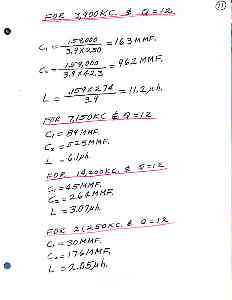 FOR 3,900 KC. & Q=12
C₁ = 159,000 / 3.9 x 250 = 163 MMF.
C₂ = 159,000 / 3.9 x 42.3 = 962 MMF.
L = .159 x 274 / 3.9 = 11.2 µh.
FOR 7,150 KC & Q=12
C₁ = 89 MMF.
C₂ = 525 MMF.
L = 6.1 µh.
FOR 14,200 KC. & Q=12
C₁ = 45 MMF.
C₂ = 264 MMF.
L = 3.07 µh.
FOR 21,250 KC. & Q=12
C₁ = 30 MMF.
C₂ = 176 MMF.
L = 2.05 µh.